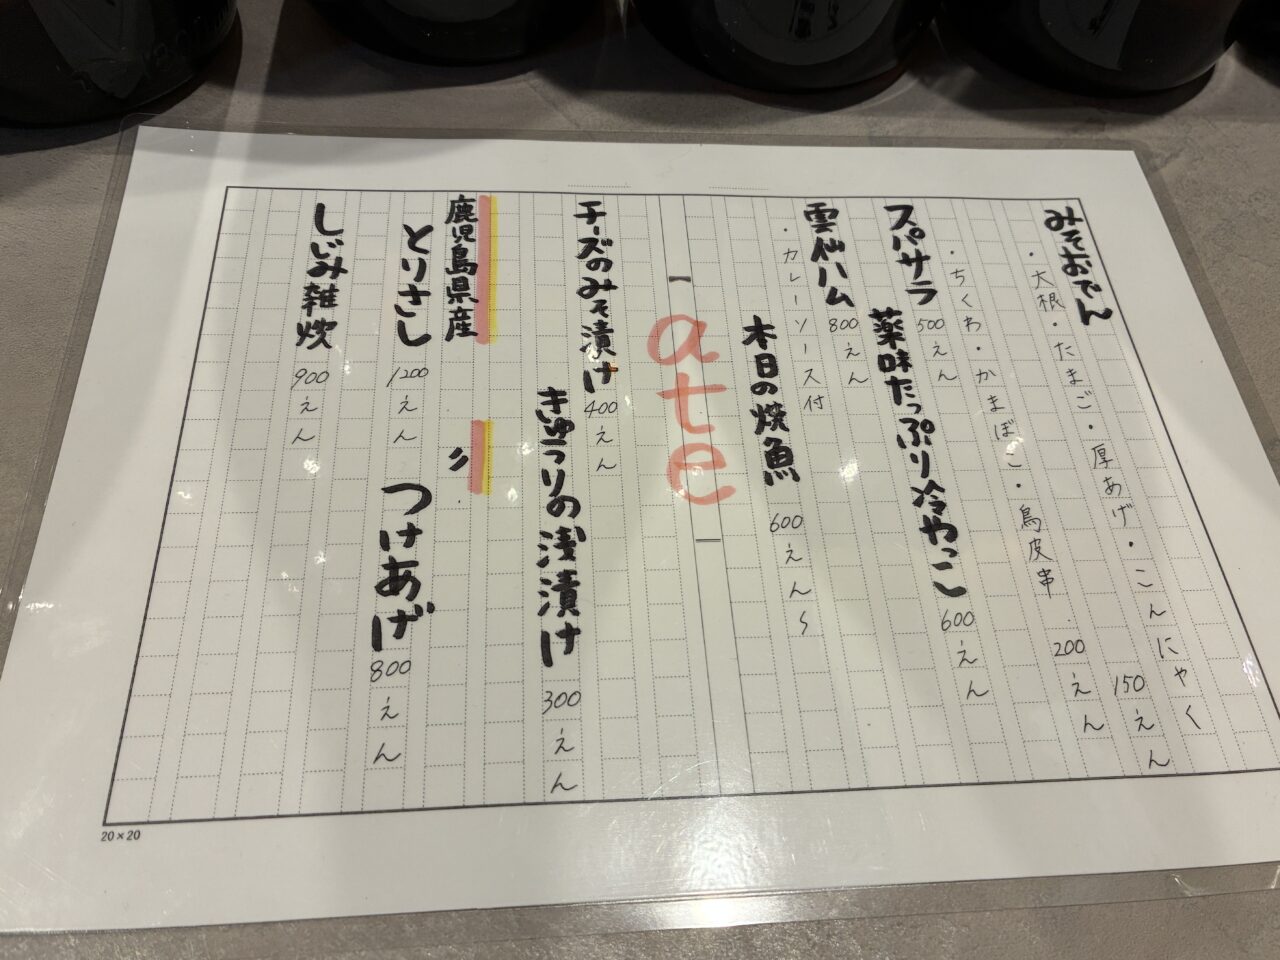 みそおでん
・大根・たまご・厚あげ・こんにゃく 150えん
・ちくわ・かまぼこ・鳥皮串 200えん
スパサラ 500えん
薬味たっぷり冷やっこ 600えん
雲仙ハム 800えん
・カレーソース付
本日の焼魚 600えん〜
ate
チーズのみそ漬け 400えん
きゅうりの浅漬け 300えん
鹿児島県産
とりさし 1200えん
〃
つけあげ 800えん
しじみ雑炊 900えん
20×20